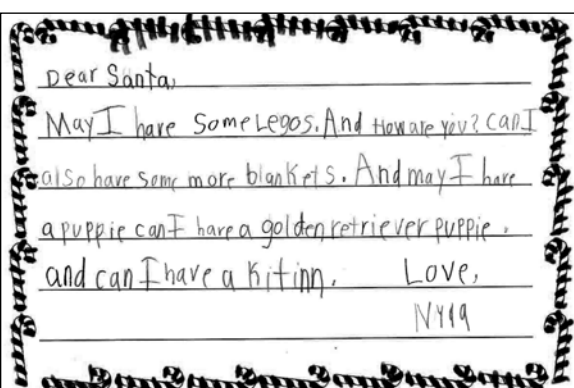 Dear Santa,
May I have some Legos. And How are you? Can I
also have some more blankets. And may I have
a puppie can I have a golden retriever puppie.
and can I have a Kitinn. Love,
Nyla